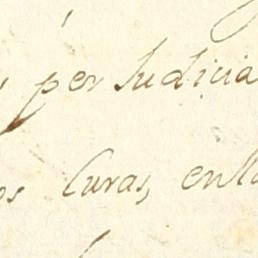 per Judicia
os Curas, enla